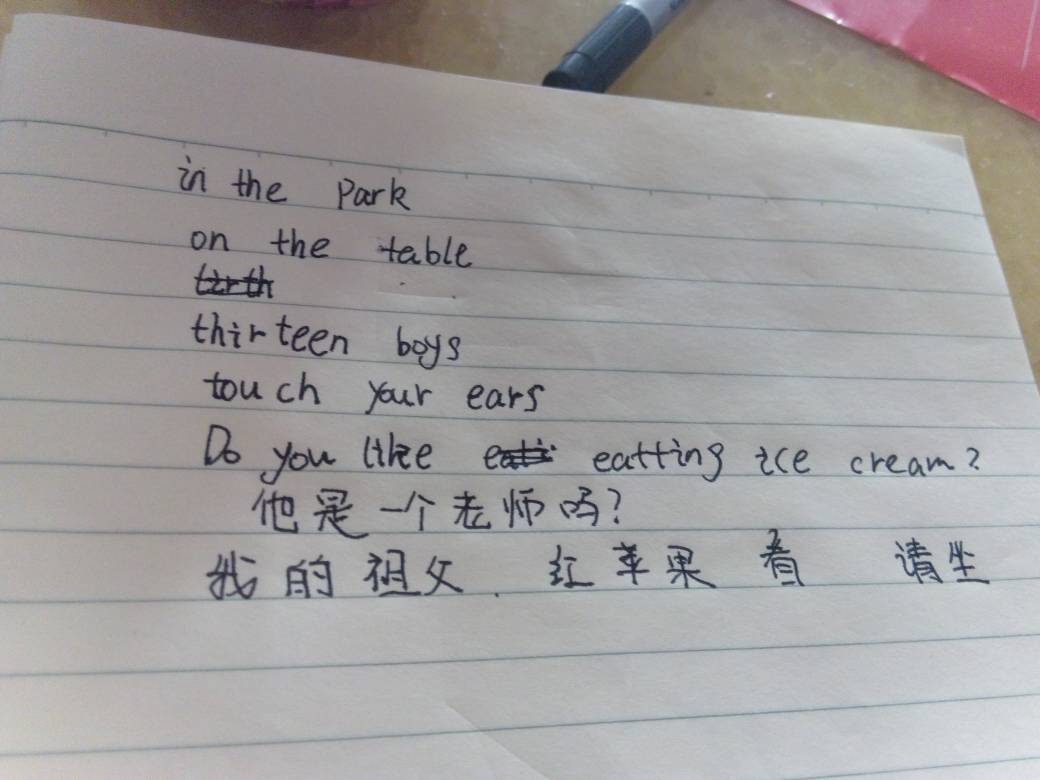 in the park
on the table
thirteen boys
touch your ears
Do you like eatting ice cream?
他是一个老师吗?
我的祖父. 红苹果 看 请坐